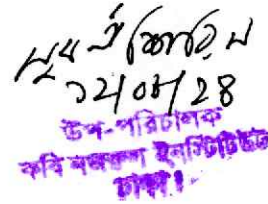 ১২/০৮/২৪
উপ-পরিচালক
কবি নজরুল ইনস্টিটিউট
ঢাকা।